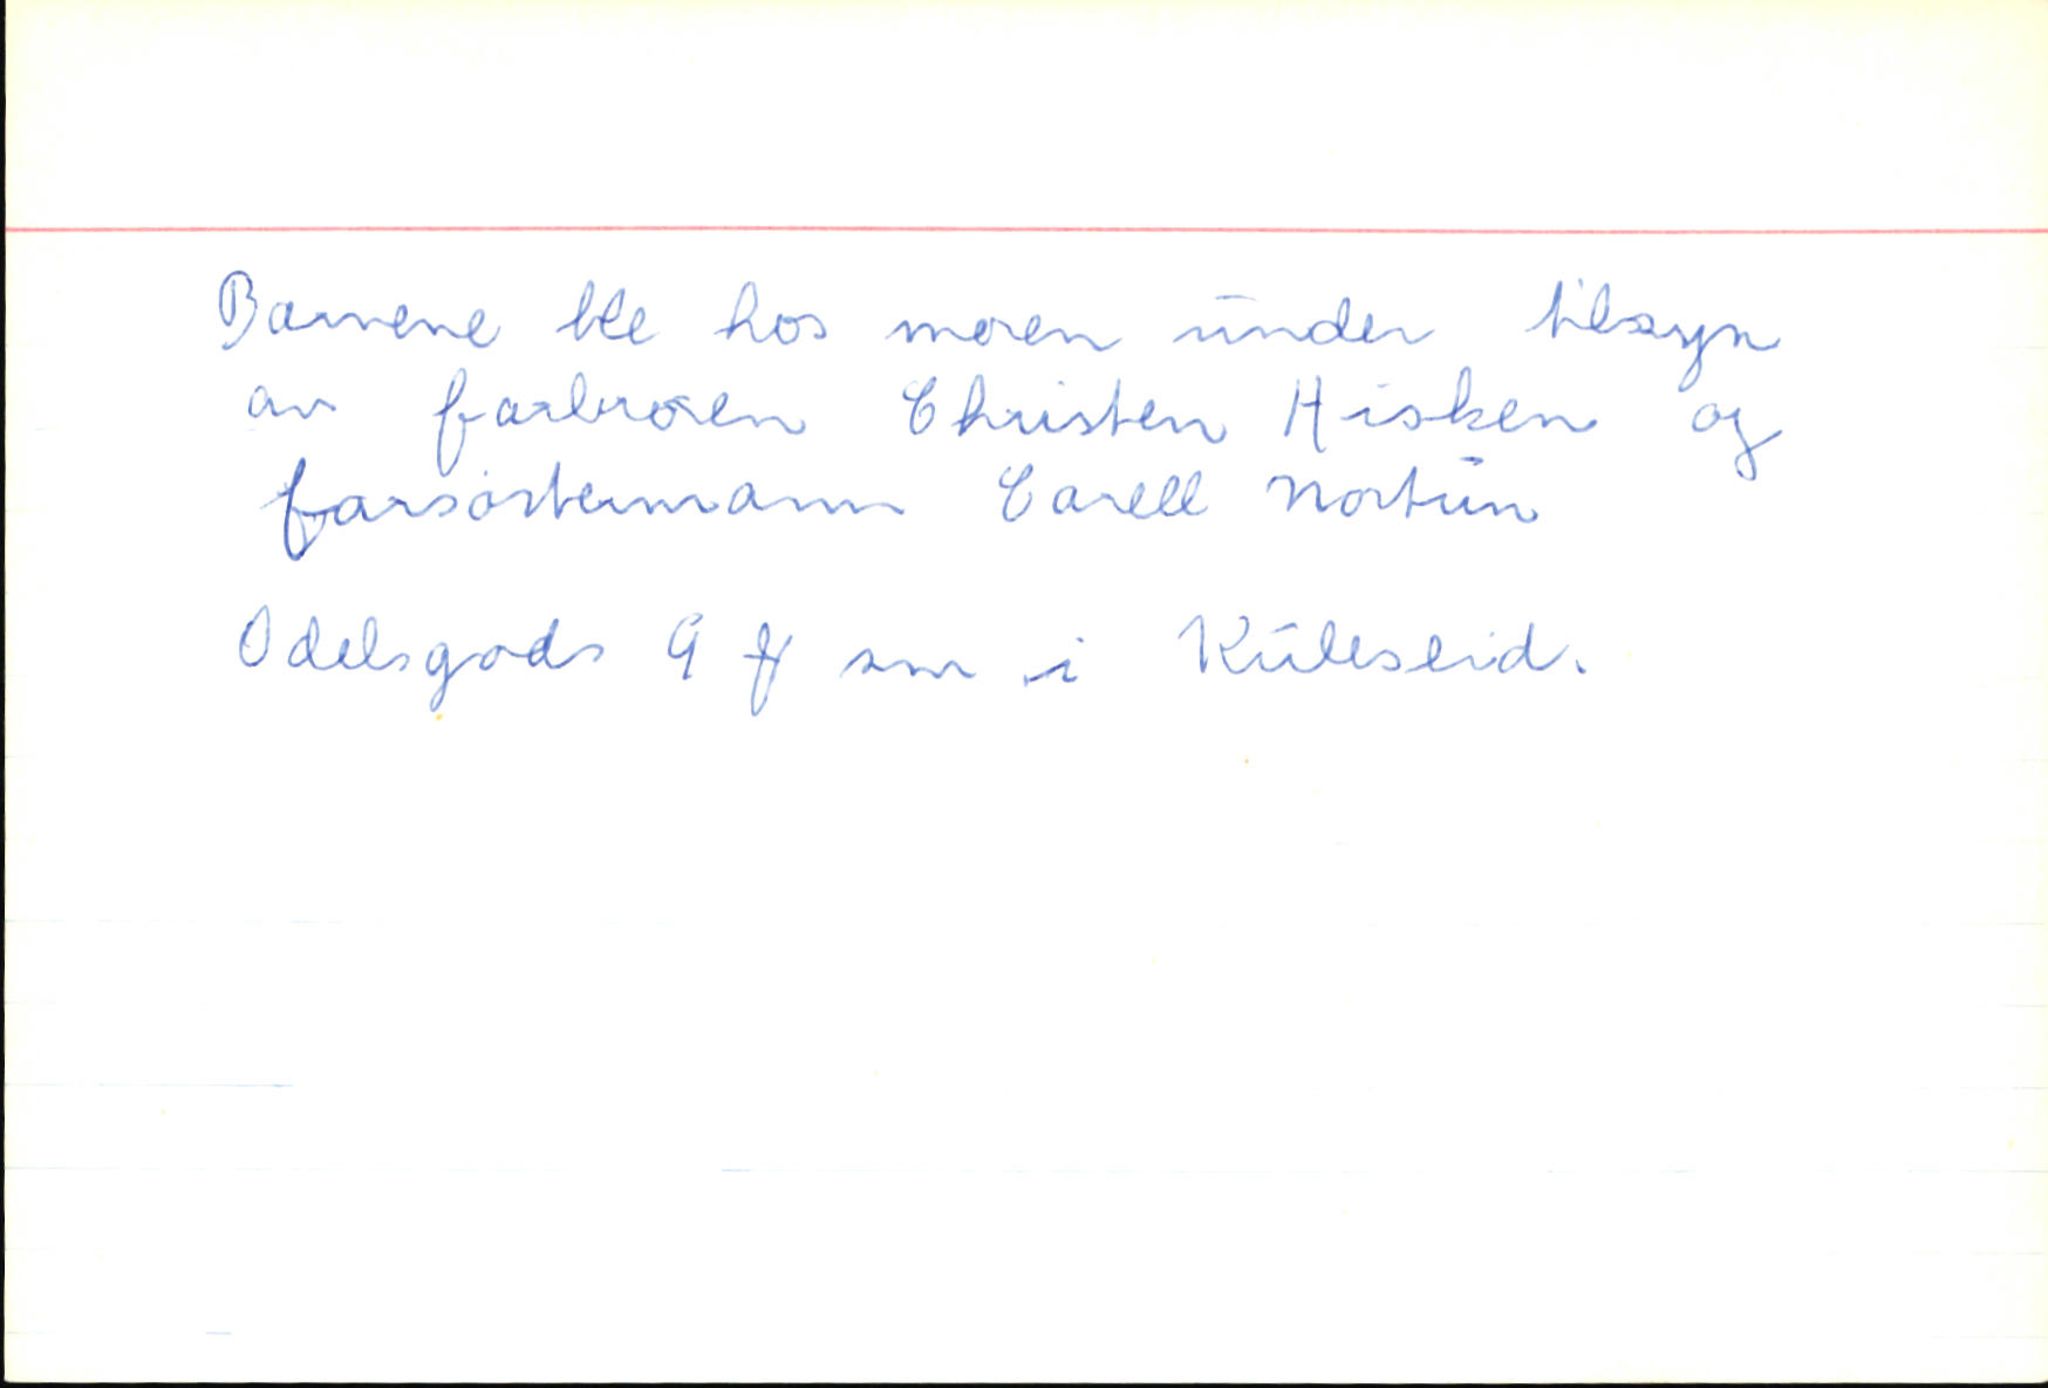 Barnene ble hos moren under tilsyn
av farbroren Christen Hisken og
farsöstermann Carell Nortun
Odelsgods 9 ℔ smr i Kuleseid.